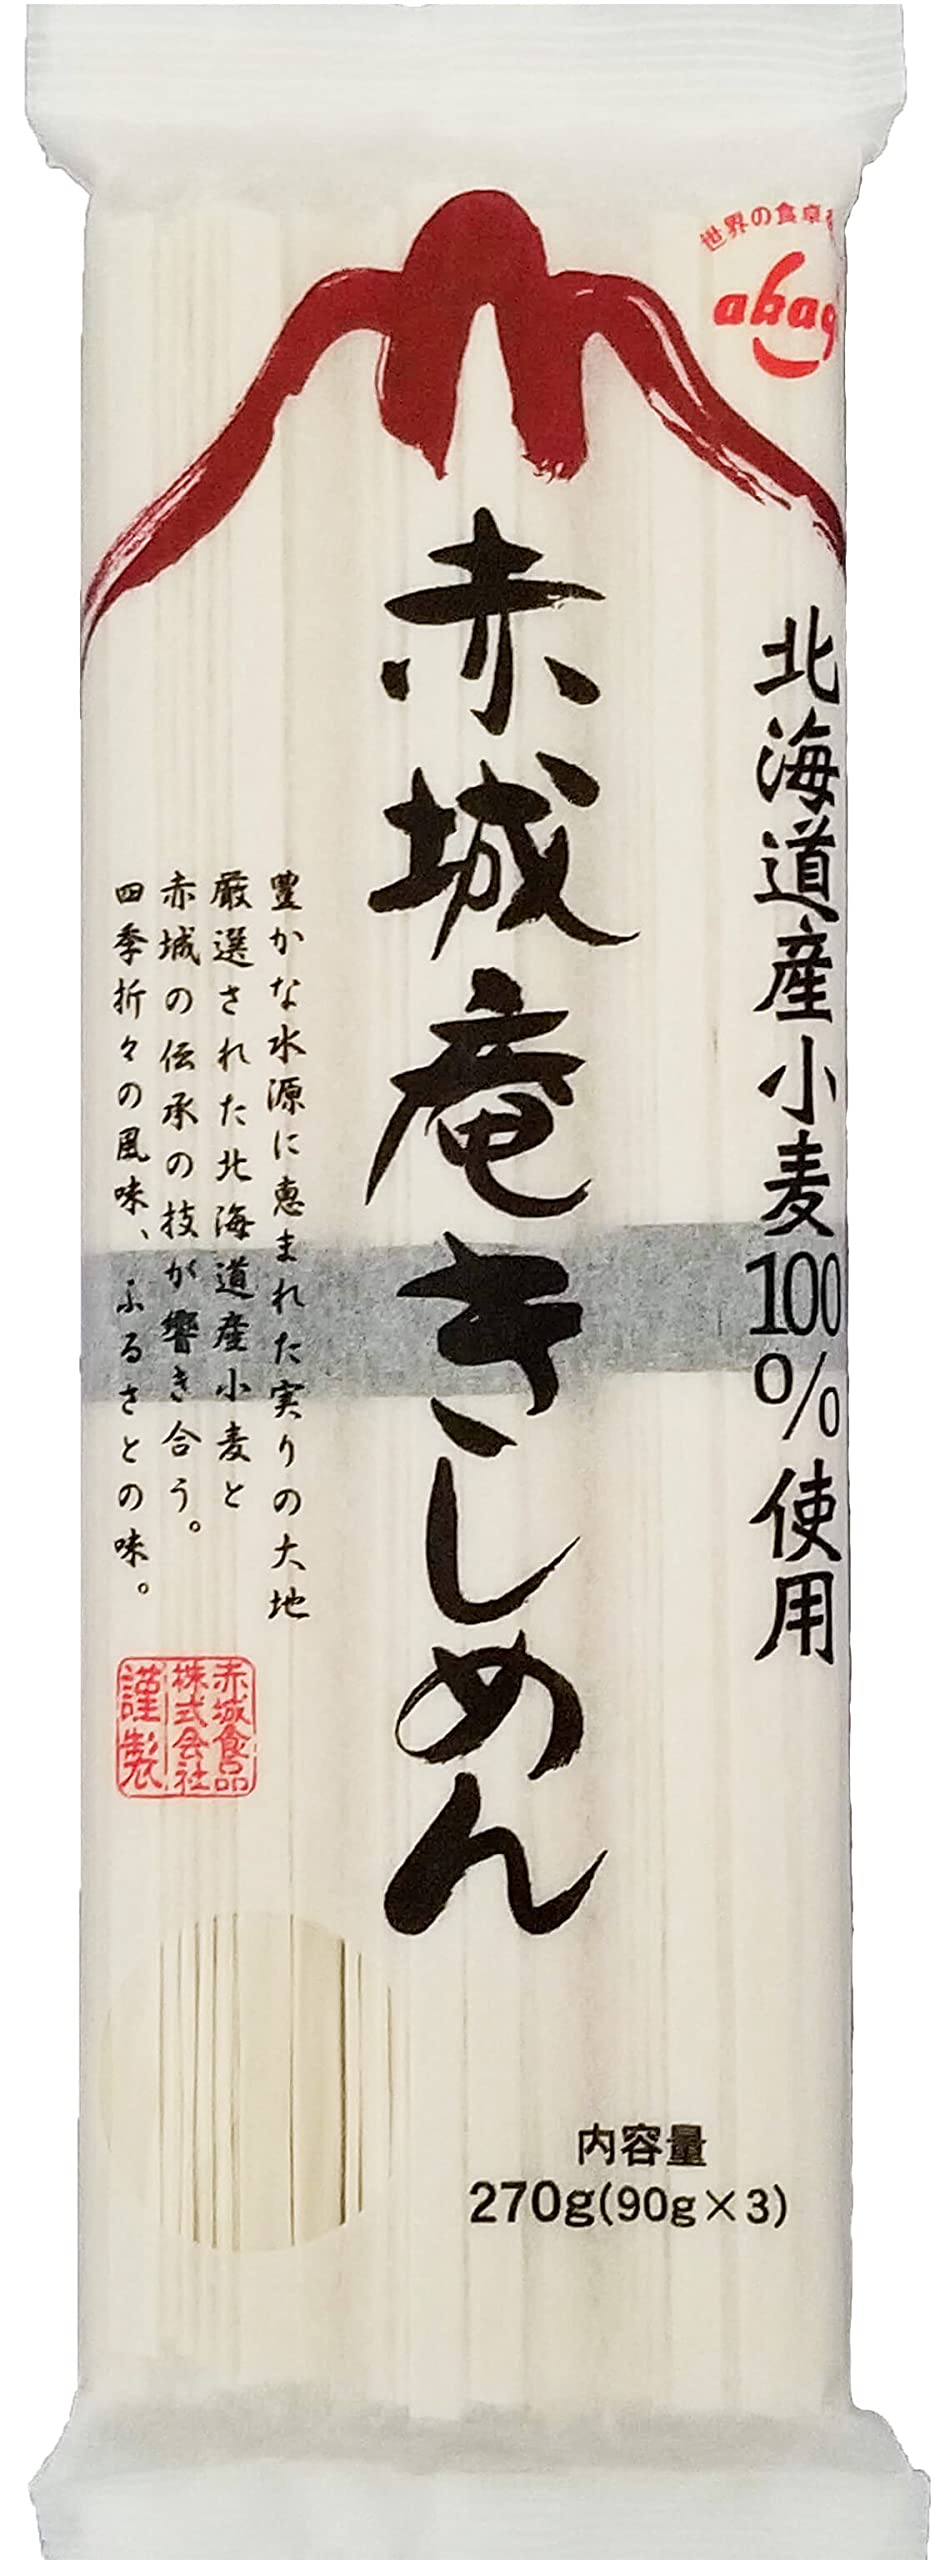 世界の食卓を
abag
北海道産小麦100%使用
赤城庵きしめん
豊かな水源に恵まれた実りの大地
厳選された北海道産小麦と
赤城の伝承の技が響き合う。
四季折々の風味、ふるさとの味。
赤城食品
株式会社
謹製
内容量
270g(90g×3)